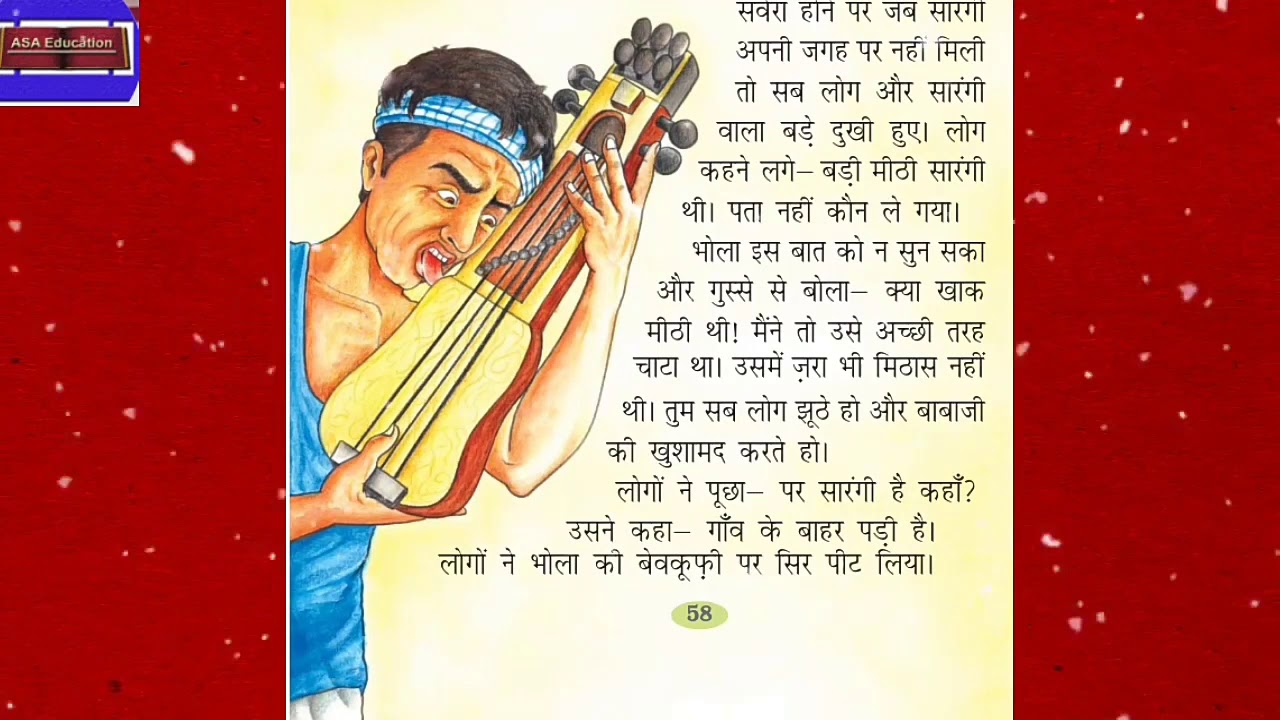 ASA Education
सवेरा होने पर जब सारंगी
अपनी जगह पर नहीं मिली
तो सब लोग और सारंगी
वाला बड़े दुखी हुए। लोग
कहने लगे– बड़ी मीठी सारंगी
थी। पता नहीं कौन ले गया।
भोला इस बात को न सुन सका
और गुस्से से बोला– क्या खाक
मीठी थी! मैंने तो उसे अच्छी तरह
चाटा था। उसमें ज़रा भी मिठास नहीं
थी। तुम सब लोग झूठे हो और बाबाजी
की खुशामद करते हो।
लोगों ने पूछा– पर सारंगी है कहाँ?
उसने कहा– गाँव के बाहर पड़ी है।
लोगों ने भोला की बेवकूफ़ी पर सिर पीट लिया।
58